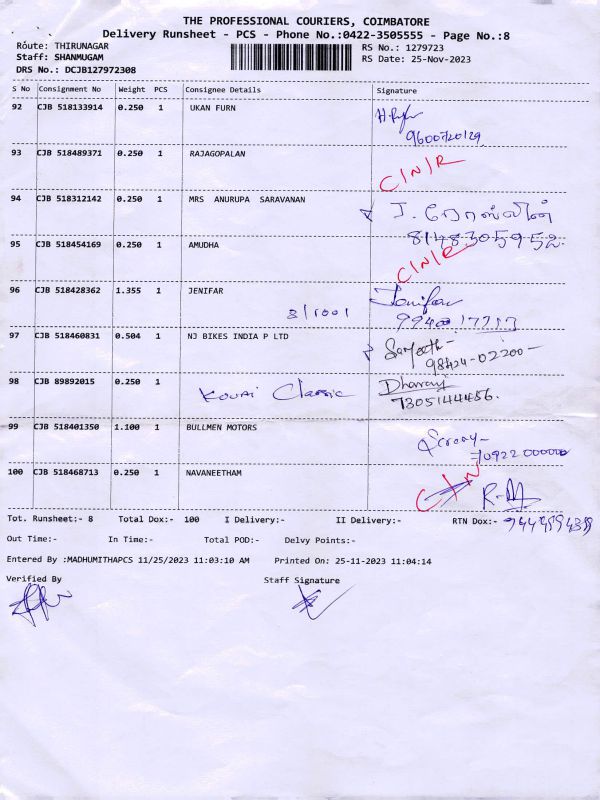 THE PROFESSIONAL COURIERS, COIMBATORE
Delivery Runsheet - PCS - Phone No.:0422-3505555 - Page No.:8
Route: THIRUNAGAR
RS No.: 1279723
Staff: SHANMUGAM
RS Date: 25-Nov-2023
DRS No.: DCJB127972308
S No Consignment No Weight PCS Consignee Details Signature
92 CJB 518133914 0.250 1 UKAN FURN
9600720129
93 CJB 518489371 0.250 1 RAJAGOPALAN
C/N/R
94 CJB 518312142 0.250 1 MRS ANURUPA SARAVANAN
J. ரோஸ்லின்
8148305952.
95 CJB 518454169 0.250 1 AMUDHA
C/N/R
96 CJB 518428362 1.355 1 JENIFAR
Jenifar
97 CJB 518460831 0.504 1 NJ BIKES INDIA P LTD
98424-02200-
98 CJB 89892015 0.250 1
Kovai Classic
Dhanraj
7305144456.
99 CJB 518401350 1.100 1 BULLMEN MOTORS
7092200000
100 CJB 518468713 0.250 1 NAVANEETHAM
C/N
Tot. Runsheet:- 8 Total Dox:- 100 I Delivery:- II Delivery:- RTN Dox:-
Out Time:- In Time:- Total POD:- Delvy Points:-
Entered By :MADHUMITHAPCS 11/25/2023 11:03:10 AM Printed On: 25-11-2023 11:04:14
Verified By Staff Signature